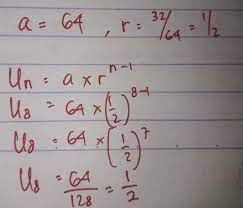 a = 64 , r = 32/64 = 1/2
Un = a × r^(n-1)
U8 = 64 × (1/2)^(8-1)
U8 = 64 × (1/2)^7
U8 = 64/128 = 1/2